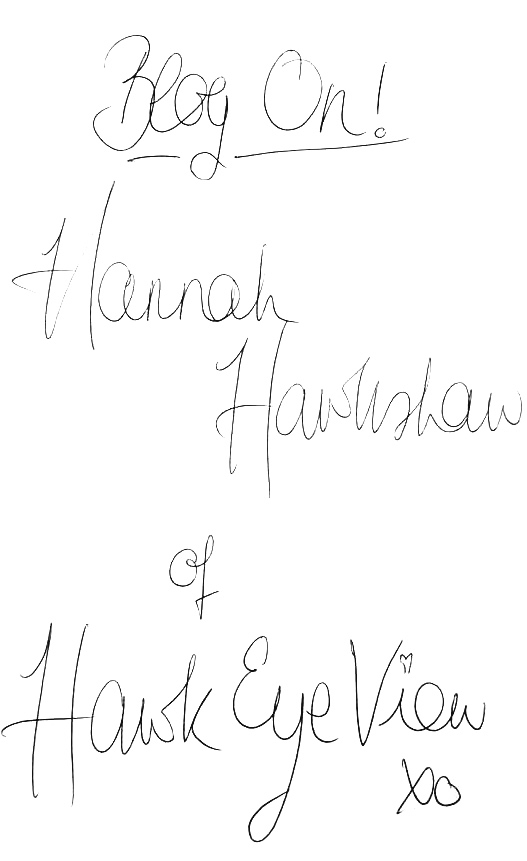 Blog On!
Hannah
Hawkshaw
of
Hawk Eye View
xo